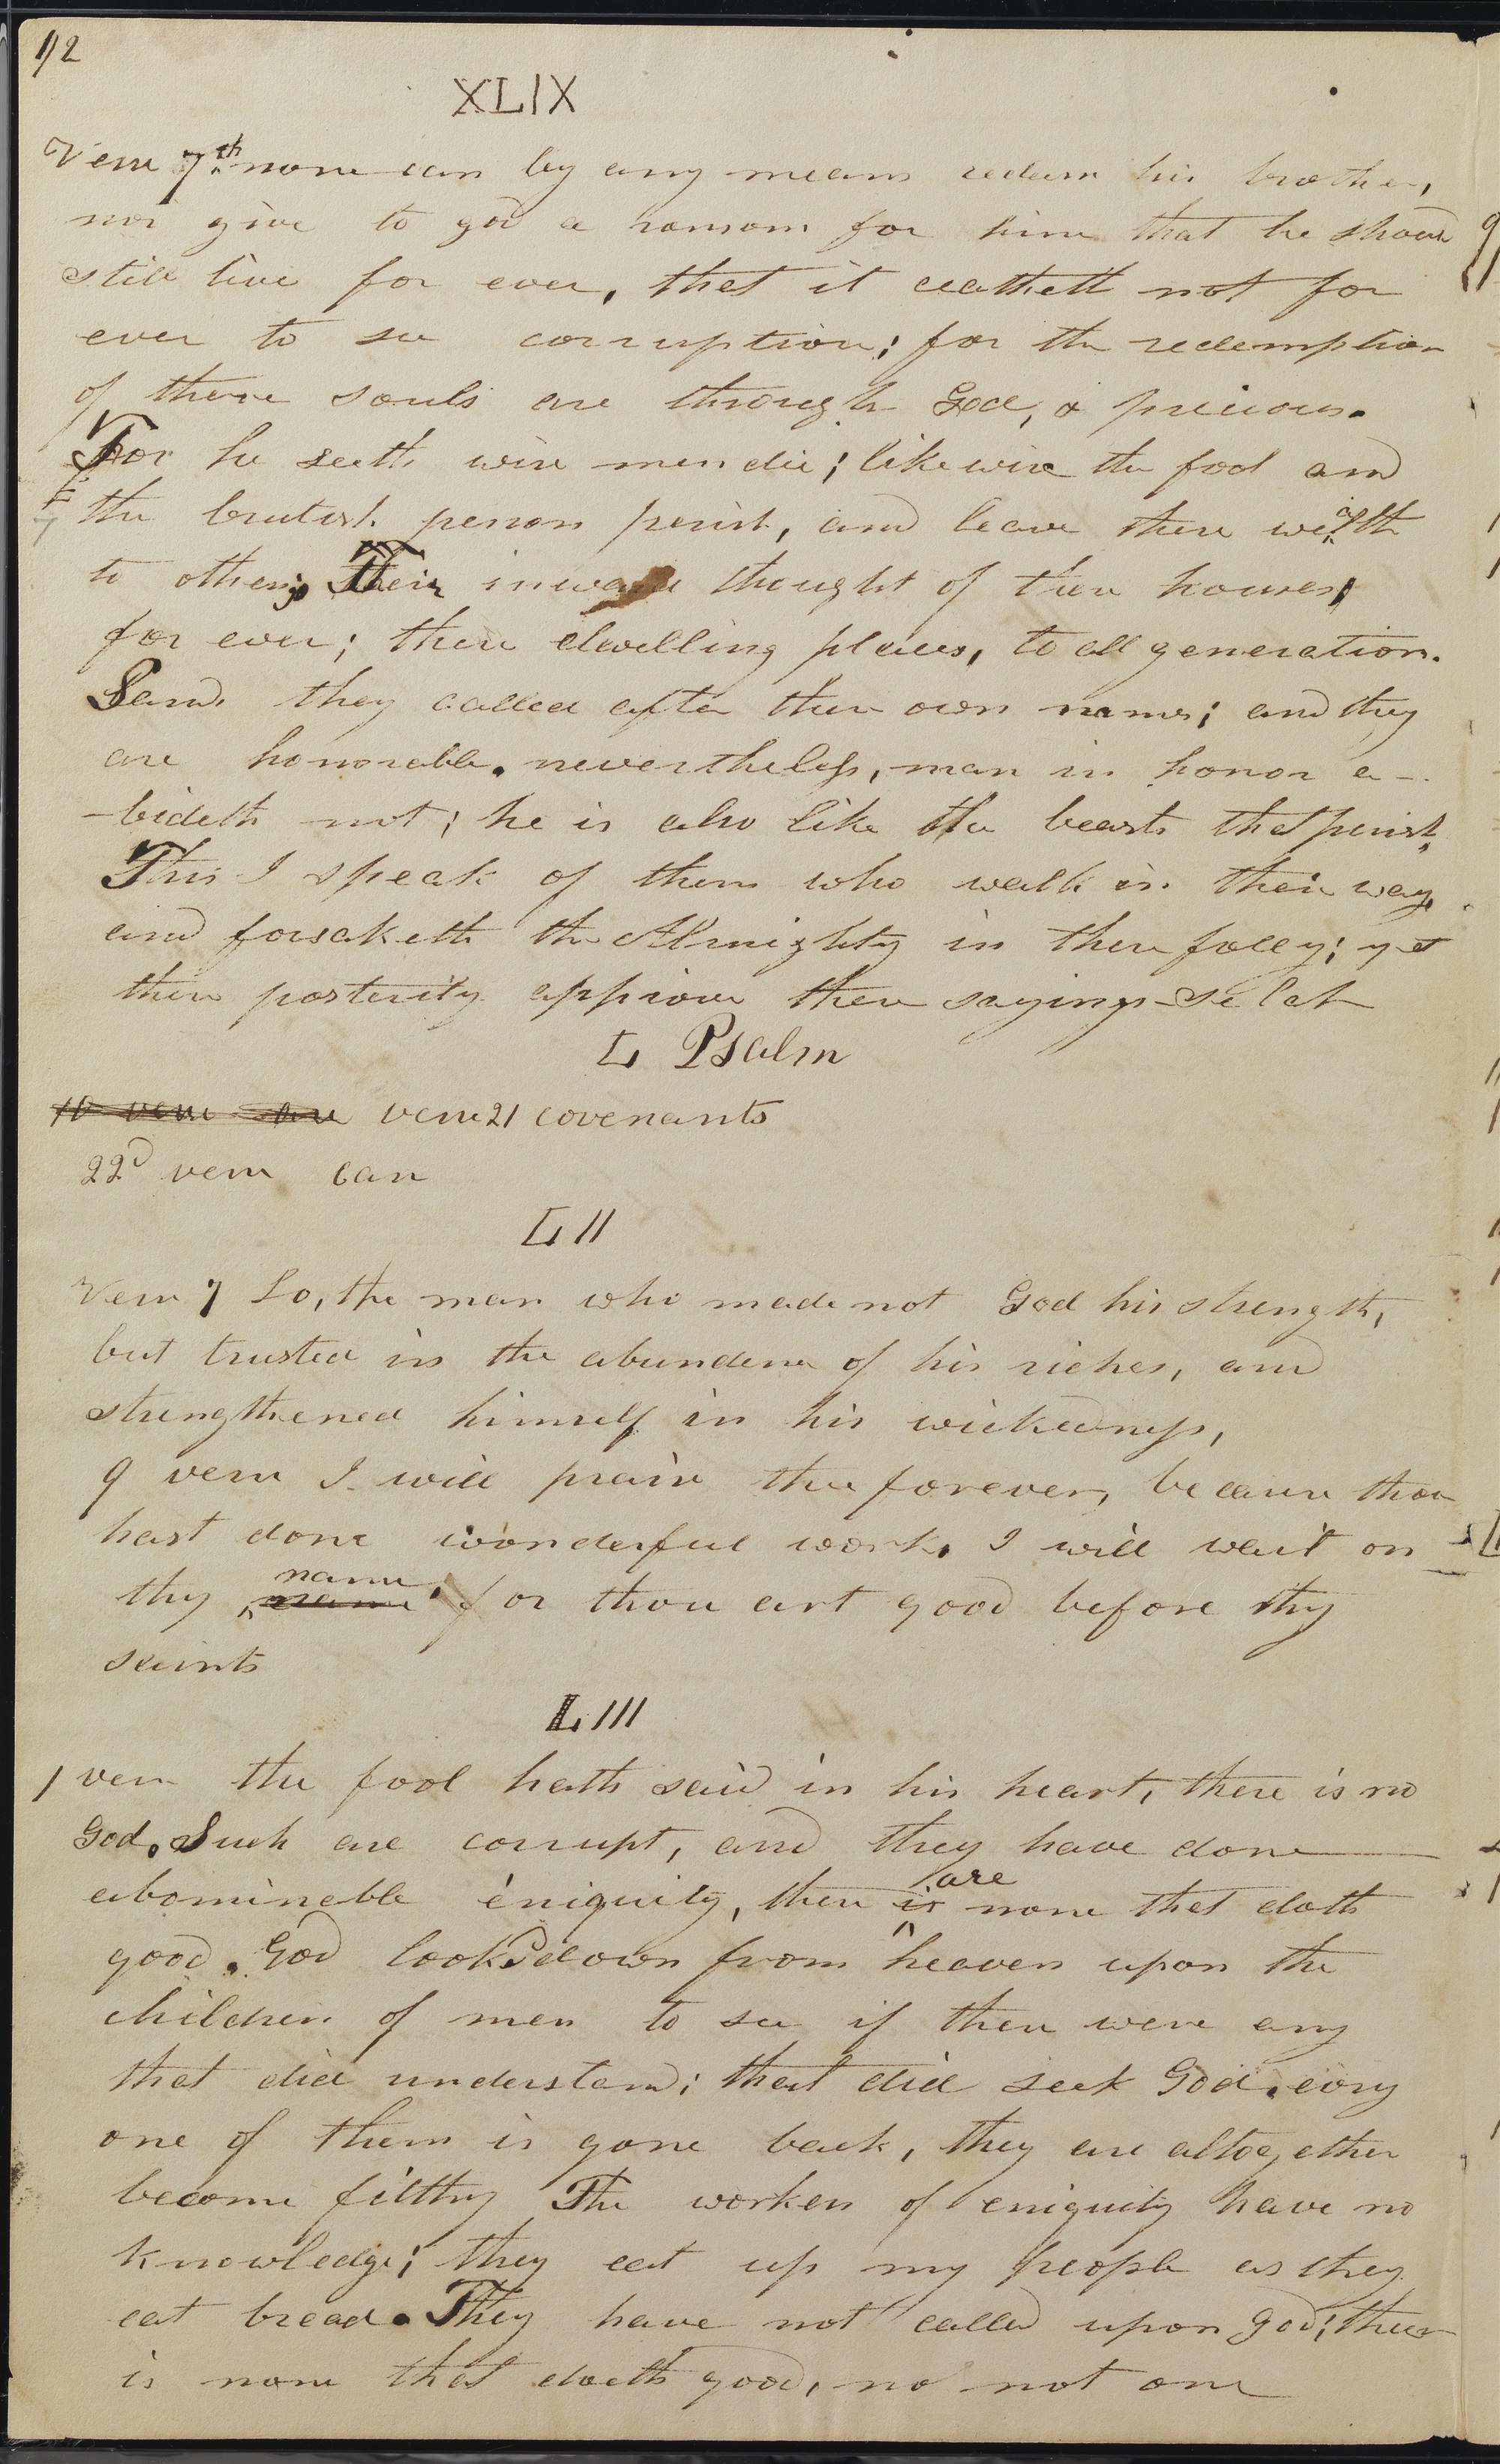 112
XLIX
Verse 7th none can by any means redeem his brother,
nor give to god a ransom for him that he should
still live for ever, that it ceatheth not for
ever to see corruption; for the redemption
of there souls are through God, & precious.
For he seeth wise men die; likewise the fool and
the brutish person perish, and leave there wealth
to others; Their inward thought of there houses;
for ever; there dwelling places, to all generation.
Lands they called after there own names; and they
are honorable. nevertheless, man in honor a-
-bideth not; he is also like the beasts that perish,
This I speak of them who walk in their way,
and forsaketh the Almighty in there folly; yet
there posterity approve there sayings Selah
L Psalm
verse 21 covenants
22d verse can
LII
Verse 7 Lo, the man who made not God his strength,
but trusted in the abundence of his riches, and
strengthened himself in his wickedness,
9 verse I will praise thee forever, because thou
hast done wonderful works I will wait on
thy name name; for thou art good before thy
saints
LIII
1 verse the fool hath said in his heart, there is no
God. Such are corrupt, and they have done
abominable eniquity, there is are none that doth
good. God looked down from heaven upon the
children of men to see if there were any
that did understand; that did seek God. evry
one of them is gone back, they are altogether
become filthy The workers of eniquity have no
knowledge; they eat up my people as they
eat bread. They have not called upon god; there
is none that doeth good, no not one